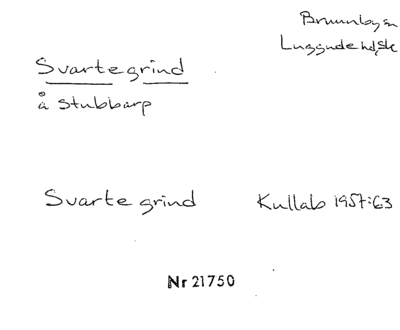 Brunnby sn
Luggude hd, Sk
Svartegrind
å Stubbarp
Svartegrind
Kullab 1957:63
Nr 21750